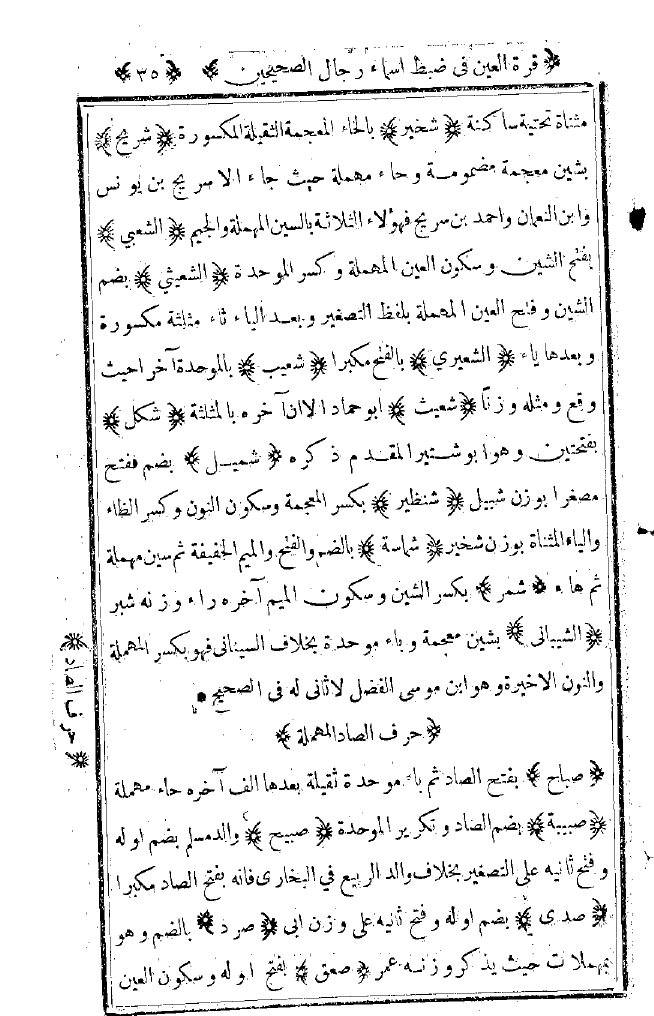 ﴿ قرة العين فى ضبط اسماء رجال الصحيحين ﴾ ﴿ ٣٥ ﴾
مثناة تحتية ساكنة ﴿ شخير ﴾ بالخاء المعجمة الثقيلة المكسورة ﴿ شريح ﴾
بشين معجمة مضمومة وحاء مهملة حيث جاء الا سريج بن يونس
وابن النعمان واحمد بن سريج فهؤلاء الثلاثة بالسين المهملة والجيم ﴿ الشعبي ﴾
بفتح الشين وسكون العين المهملة وكسر الموحدة ﴿ الشعيثي ﴾ بضم
الشين وفتح العين المهملة بلفظ التصغير وبعد الياء ثاء مثلثة مكسورة
وبعدها ياء ﴿ الشعيري ﴾ بالفتح مكبرا ﴿ شعيب ﴾ بالموحدة آخرا حيث
وقع ومثله وزنًا ﴿ شعيث ﴾ ابو حماد الا ان آخره بالمثلثة ﴿ شكل ﴾
بفتحتين وهو ابو شتير المقدم ذكره ﴿ شميل ﴾ بضم ففتح
مصغرا بوزن شبيل ﴿ شنظير ﴾ بكسر المعجمة وسكون النون وكسر الظاء
والياء المثناة بوزن شخير ﴿ شماسة ﴾ بالضم والفتح والميم الخفيفة ثم سين مهملة
ثم هاء ﴿ شمر ﴾ بكسر الشين وسكون الميم آخره راء وزنه شبر
﴿ الشيبانى ﴾ بشين معجمة وباء موحدة بخلاف السينانى فهو بكسر المهملة
والنون الاخيرة وهو ابن موسى الفضل لا ثانى له فى الصحيح
﴿ حرف الصاد المهملة ﴾
﴿ حرف الصاد ﴾
﴿ صباح ﴾ بفتح الصاد ثم باء موحدة ثقيلة بعدها الف آخره حاء مهملة
﴿ صبيبة ﴾ بضم الصاد وتكرير الموحدة ﴿ صبيح ﴾ والد مسلم بضم اوله
وفتح ثانيه على التصغير بخلاف والد الربيع في البخارى فانه بفتح الصاد مكبرا
﴿ صدى ﴾ بضم اوله وفتح ثانيه على وزن ابى ﴿ صرد ﴾ بالضم وهو
بمهملات حيث يذكر وزنه عمر ﴿ صعق ﴾ بفتح اوله وسكون العين